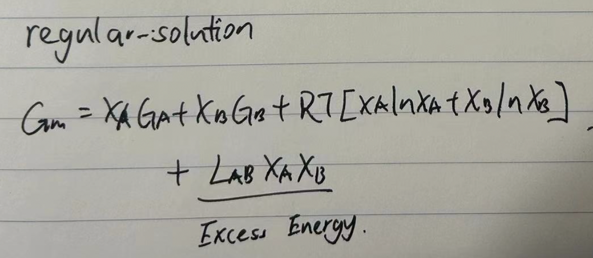 regular-solution
Gm = XA GA + XB GB + RT [XA ln XA + XB ln XB]
+ LAB XA XB
Excess Energy.